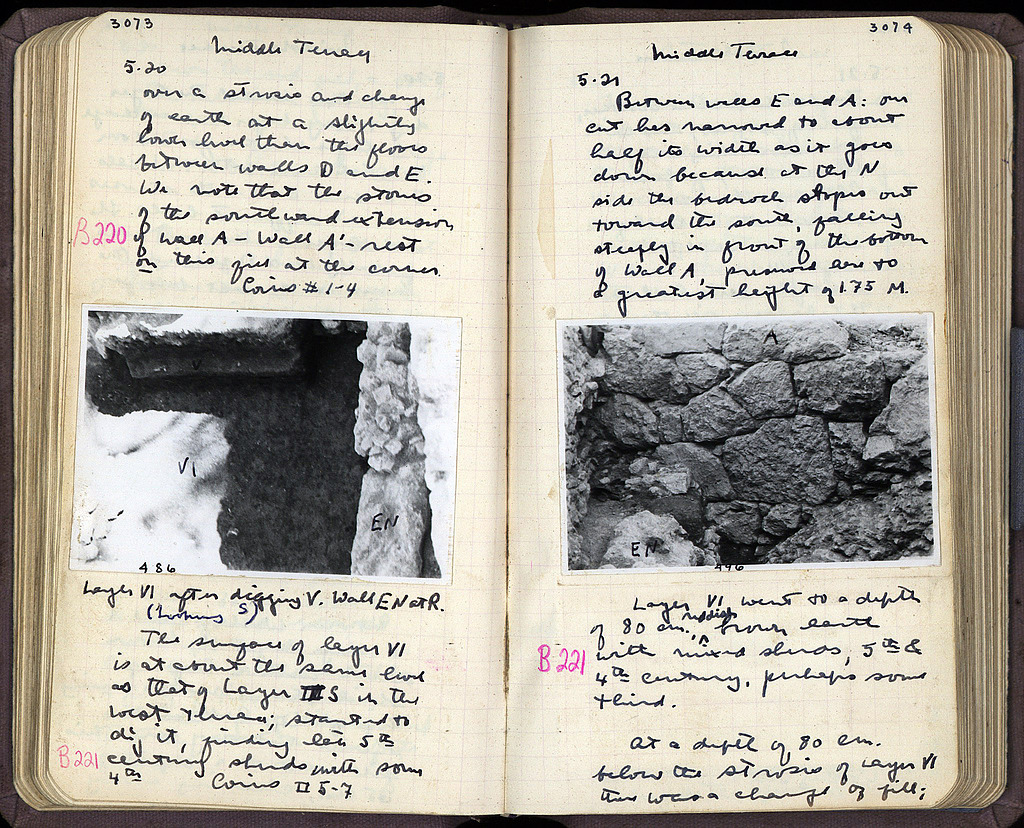 3073
Middle Terrace
5.20
over a strosis and change
of earth at a slightly
lower level than the floors
between walls D and E.
We note that the stones
of the southward extension
B220
of Wall A – Wall A' – rest
on this fill at the corner.
Coins # 1-4
V
VI
EN
486
Layer VI after digging V. Wall EN at R.
(Looking S)
The surface of layer VI
is at about the same level
as that of Layer III S in the
West Terrace; started to
dig it, finding late 5th
B221
century sherds with some
4th
Coins # 5-7
3074
Middle Terrace
5.21
Between walls E and A: our
cut has narrowed to about
half its width as it goes
down because at the N
side the bedrock slopes out
toward the south, falling
steeply in front of the bottom
of Wall A, preserved here to
a greatest height of 1.75 M.
A
EN
496
Layer VI went to a depth
of 80 cm., reddish brown earth
B221
with mixed sherds, 5th &
4th century, perhaps some
third.
At a depth of 80 cm.
below the strosis of Layer VI
there was a change of fill;